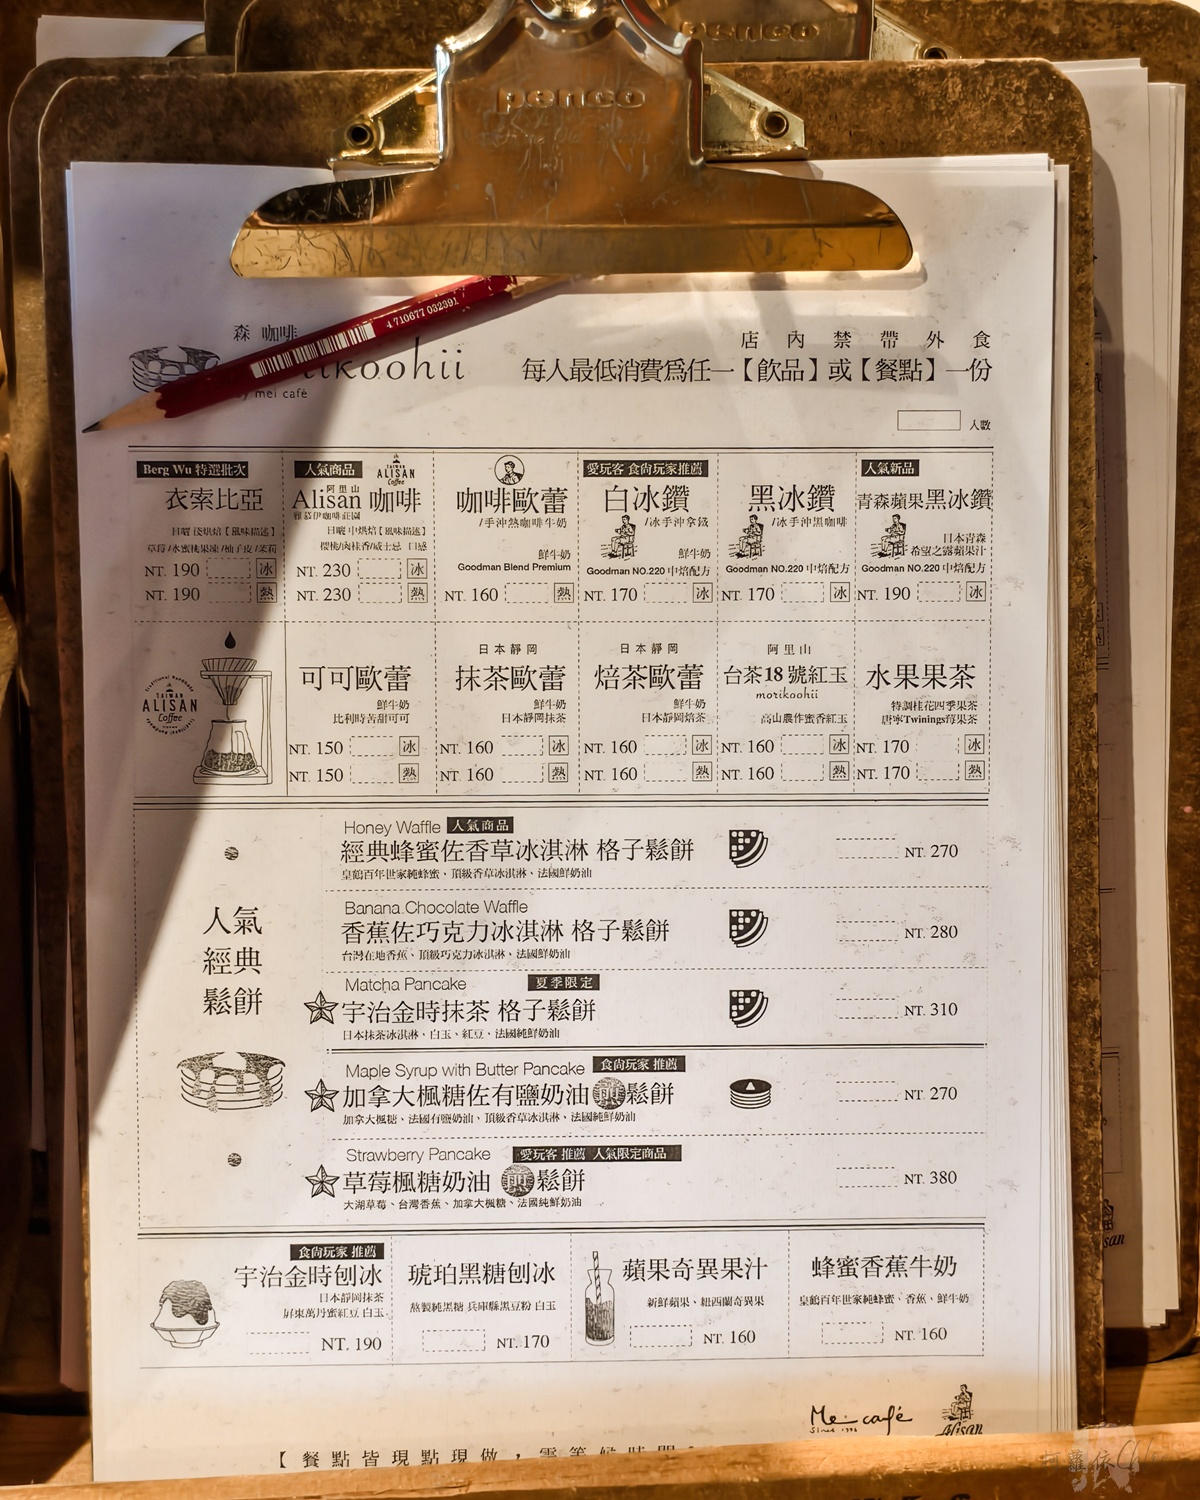 penco
penco
4 710677 032391
森 咖啡
rikoohii
mei cafe
店內禁帶外食
每人最低消費為任一【飲品】或【餐點】一份
人數
Berg Wu 特選批次
衣索比亞
日曬 淺烘焙【風味描述】
草莓/水蜜桃果凍/柚子皮/茉莉
NT. 190 冰
NT. 190 熱
人氣商品
TAIWAN
ALISAN
Coffee
阿里山
Alisan 咖啡
雅慕伊咖啡莊園
日曬 中烘焙【風味描述】
櫻桃/肉桂香/威士忌 口感
NT. 230 冰
NT. 230 熱
咖啡歐蕾
/手沖熱咖啡牛奶
鮮牛奶
Goodman Blend Premium
NT. 160 熱
愛玩客 食尚玩家推薦
白冰鑽
/冰手沖拿鐵
鮮牛奶
Goodman NO.220 中焙配方
NT. 170 冰
黑冰鑽
/冰手沖黑咖啡
Goodman NO.220 中焙配方
NT. 170 冰
人氣新品
青森蘋果黑冰鑽
日本青森
希望之露蘋果汁
Goodman NO.220 中焙配方
NT. 190 冰
Traditional Handmade
TAIWAN
ALISAN
Coffee
可可歐蕾
鮮牛奶
比利時苦甜可可
NT. 150 冰
NT. 150 熱
日本靜岡
抹茶歐蕾
鮮牛奶
日本靜岡抹茶
NT. 160 冰
NT. 160 熱
日本靜岡
焙茶歐蕾
鮮牛奶
日本靜岡焙茶
NT. 160 冰
NT. 160 熱
阿里山
台茶18號紅玉
morikoohii
高山農作蜜香紅玉
NT. 160 冰
NT. 160 熱
水果果茶
特調桂花四季果茶
唐寧Twinings莓果茶
NT. 170 冰
NT. 170 熱
人氣
經典
鬆餅
Honey Waffle 人氣商品
經典蜂蜜佐香草冰淇淋 格子鬆餅
皇鶴百年世家純蜂蜜、頂級香草冰淇淋、法國鮮奶油
NT. 270
Banana Chocolate Waffle
香蕉佐巧克力冰淇淋 格子鬆餅
台灣在地香蕉、頂級巧克力冰淇淋、法國鮮奶油
NT. 280
Matcha Pancake 夏季限定
宇治金時抹茶 格子鬆餅
日本抹茶冰淇淋、白玉、紅豆、法國純鮮奶油
NT. 310
Maple Syrup with Butter Pancake 食尚玩家 推薦
加拿大楓糖佐有鹽奶油煎鬆餅
加拿大楓糖、法國有鹽奶油、頂級香草冰淇淋、法國純鮮奶油
NT. 270
Strawberry Pancake 愛玩客 推薦 人氣限定商品
草莓楓糖奶油 煎鬆餅
大湖草莓、台灣香蕉、加拿大楓糖、法國純鮮奶油
NT. 380
食尚玩家 推薦
宇治金時刨冰
日本靜岡抹茶
屏東萬丹蜜紅豆 白玉
NT. 190
琥珀黑糖刨冰
熬製純黑糖 兵庫縣黑豆粉 白玉
NT. 170
蘋果奇異果汁
新鮮蘋果、紐西蘭奇異果
NT. 160
蜂蜜香蕉牛奶
皇鶴百年世家純蜂蜜、香蕉、鮮牛奶
NT. 160
Mei café
Alisan
【餐點皆現點現做，需等候時間